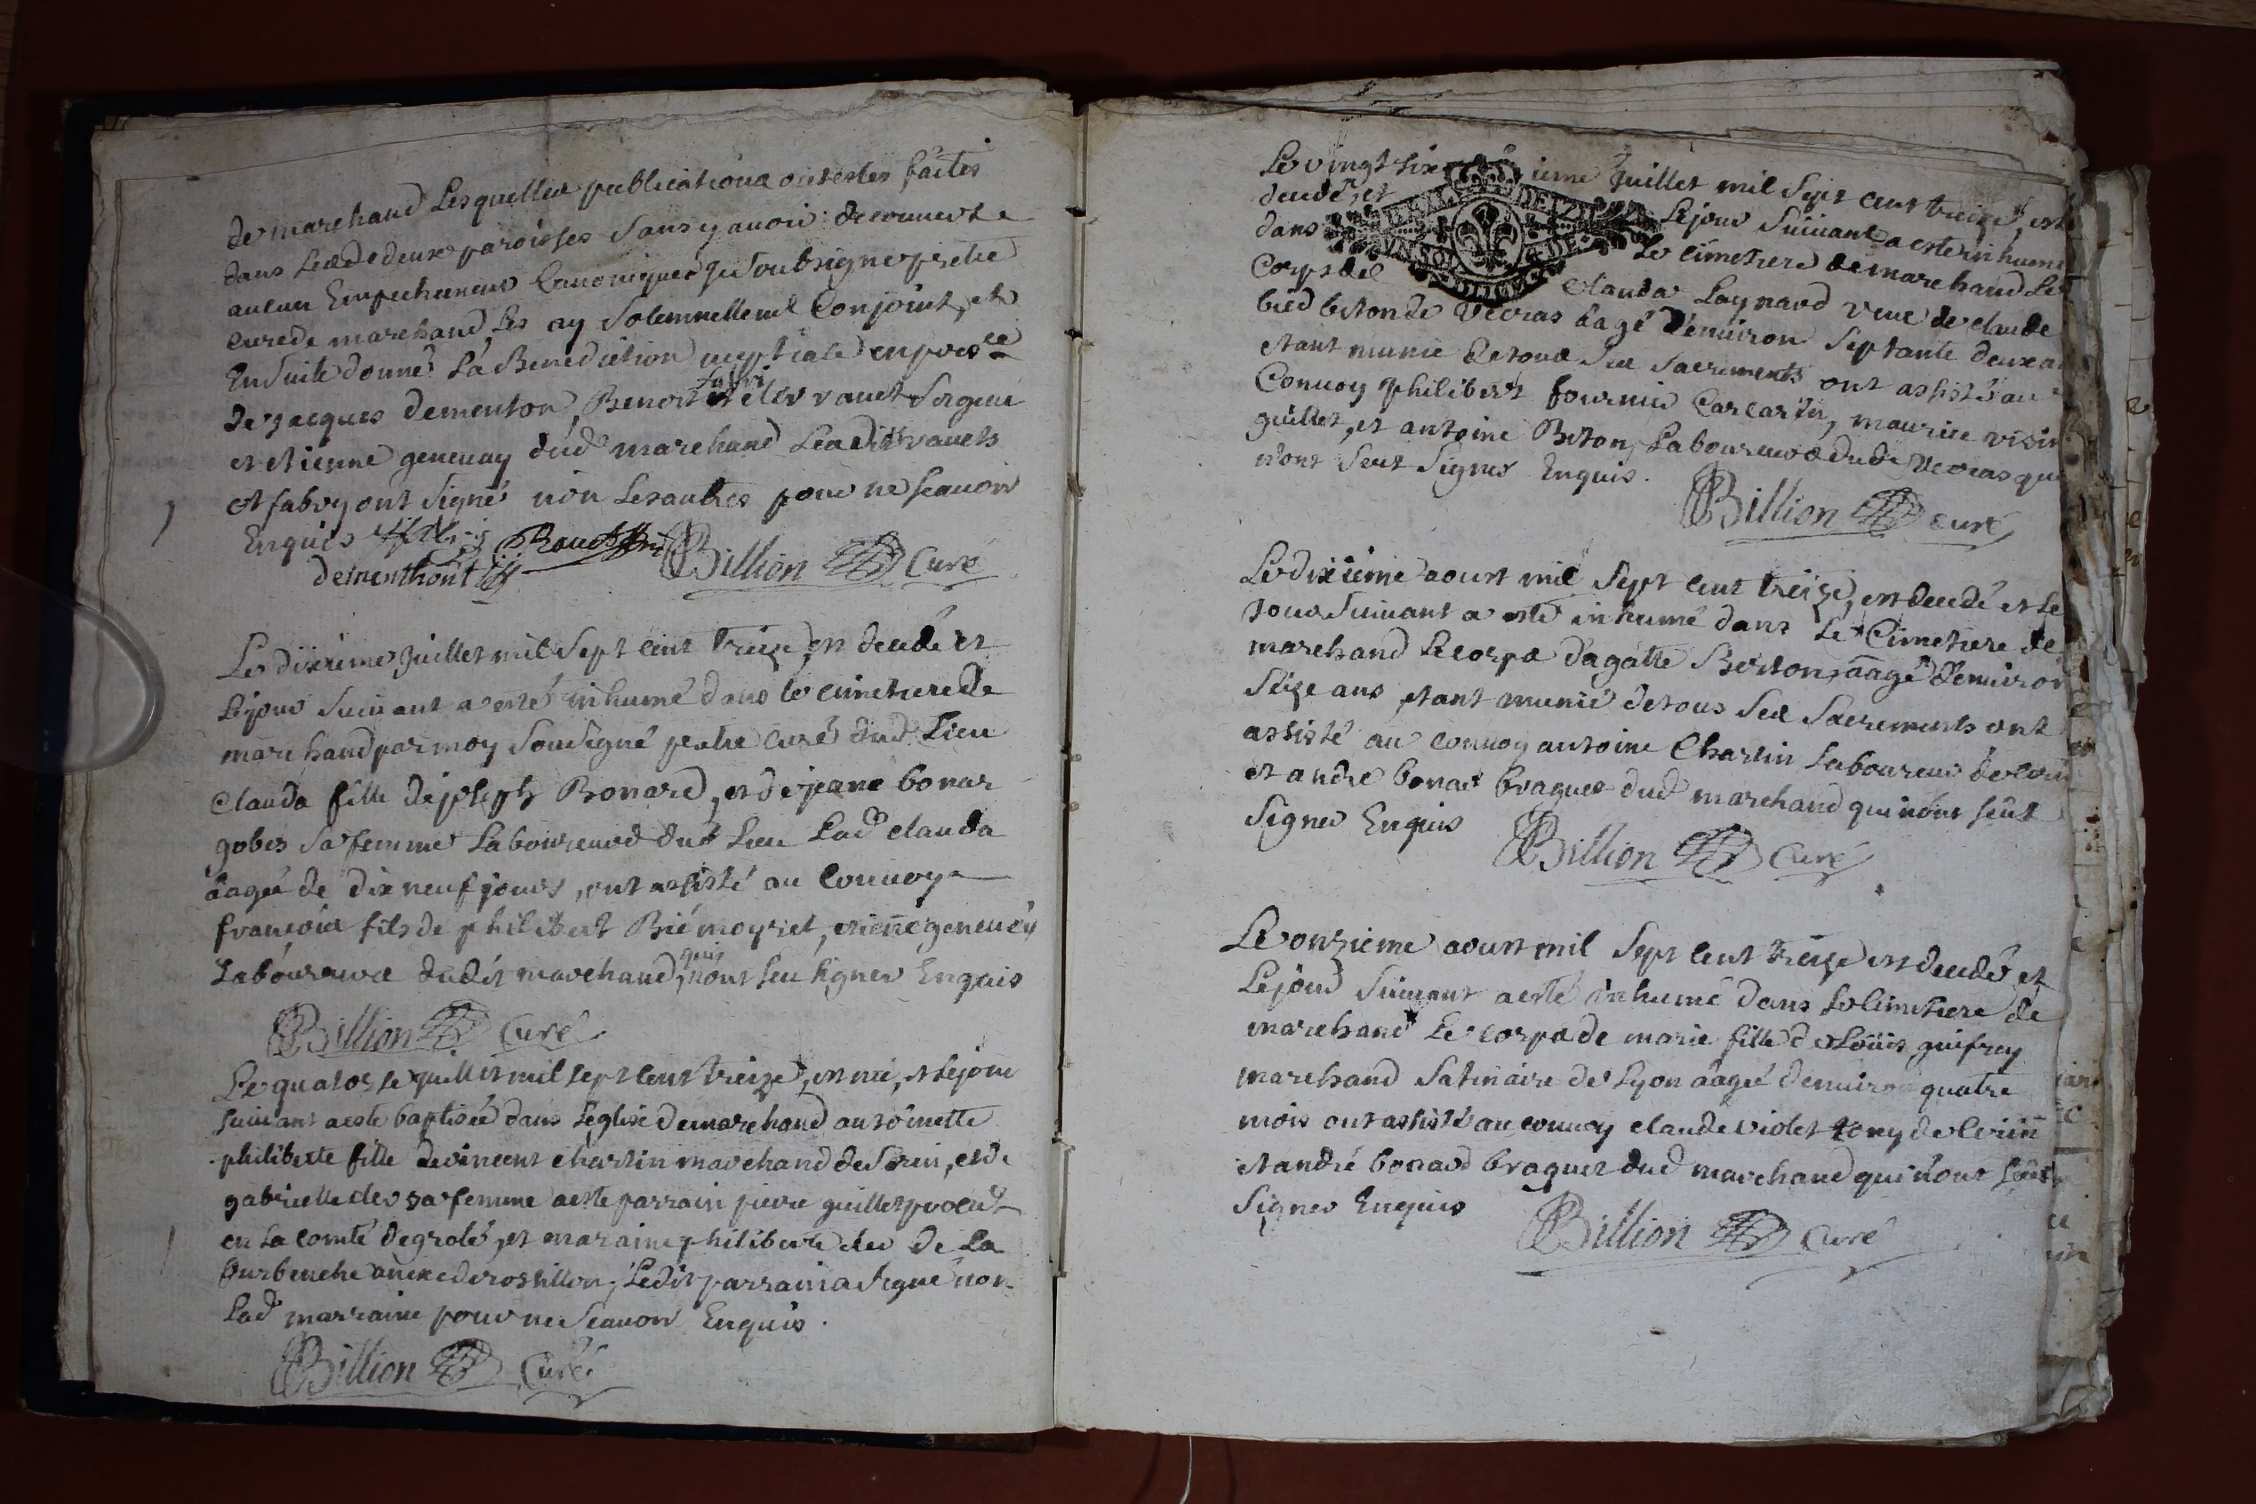 de marchand Lesquelles publications ont estes faites
dans Lesd deux paroisses sans y avoir decouvert
aucun Empechement Canonique Je soubsigne prestre
curé de marchand, les ay solemnellement Conjoint, et
Ensuite donné La Benediction nuptiale en presce
de jacques dementon, Benoit
et etienne geneuay dud marchand
et fabvy ont signé non Les autres pour ne scauoir
Enquis
dementhont Billion Curé
Le dixieme Juillet mil sept cent treize, est decedé et
Le jour suiuant a esté inhumé dans le cimetiere de
marchand par moy sousigné pretre curé dud Lieu
Clauda fille de joseph Bonard, et de jeane bonar
gobes sa femme Laboureurs dud Lieu Lad clauda
aagée de dix neuf jours, ont assisté au Conuoy
françois fils de philibert Bié moyriet, etiene geneuey
Laboureurs dudit marchand, qui n'ont seu signer Enquis
Billion Curé
Le quatorze Juillet mil sept cent treize, est née, et Le jour
suiuant a esté baptisée dans L'eglise de marchand antoinette
philiberte fille de vincent chartin marchand de, et de
gabrielle der sa femme a esté parrain pierre guillet
en La comté de grolé, et maraine philiberte der de La
Burbenche anexe de rossillon, Ledit parrain a signé non
Lad marraine pour ne scauoir Enquis.
Billion Curé
Le vingt sixieme Juillet mil sept cent treize, est
decedé, et Le jour suiuant a esté inhumé
dans Le cimetiere de marchand Le
Corps de Clauda Laynard veue de claude
bied beton de Vecras aagé d'enuiron septante deux
etant munie de tous ses sacrements ont assisté au
Conuoy philibert fournier, maurice
guillet, et antoine Beton, Laboureurs dud Vecras qui
n'ont seut signer Enquis.
Billion curé
Le dixieme aoust mil sept cent treize, est decedé et Le
jour suiuant a esté inhumé dans Le Cimetiere de
marchand Le corps d'agatte Berton, aagé d'enuiron
seize ans, etant munié de tous ses sacrements ont
assisté au conuoy antoine Chartin Laboureur de
et andre bonard braguet dud marchand qui n'ont seut
signer Enquis Billion Curé
Le onzieme aoust mil sept cent treize est decedé et
Le jour suiuant a esté inhumé dans Le Cimetiere de
marchand Le corps de marie fille de Loüis guifrey
marchand satinaire de Lyon aagée d'enuiron quatre
mois ont assisté au conuoy claude violet tony de
et andré bonard braguet dud marchand qui n'ont seut
signer Enquis
Billion Curé